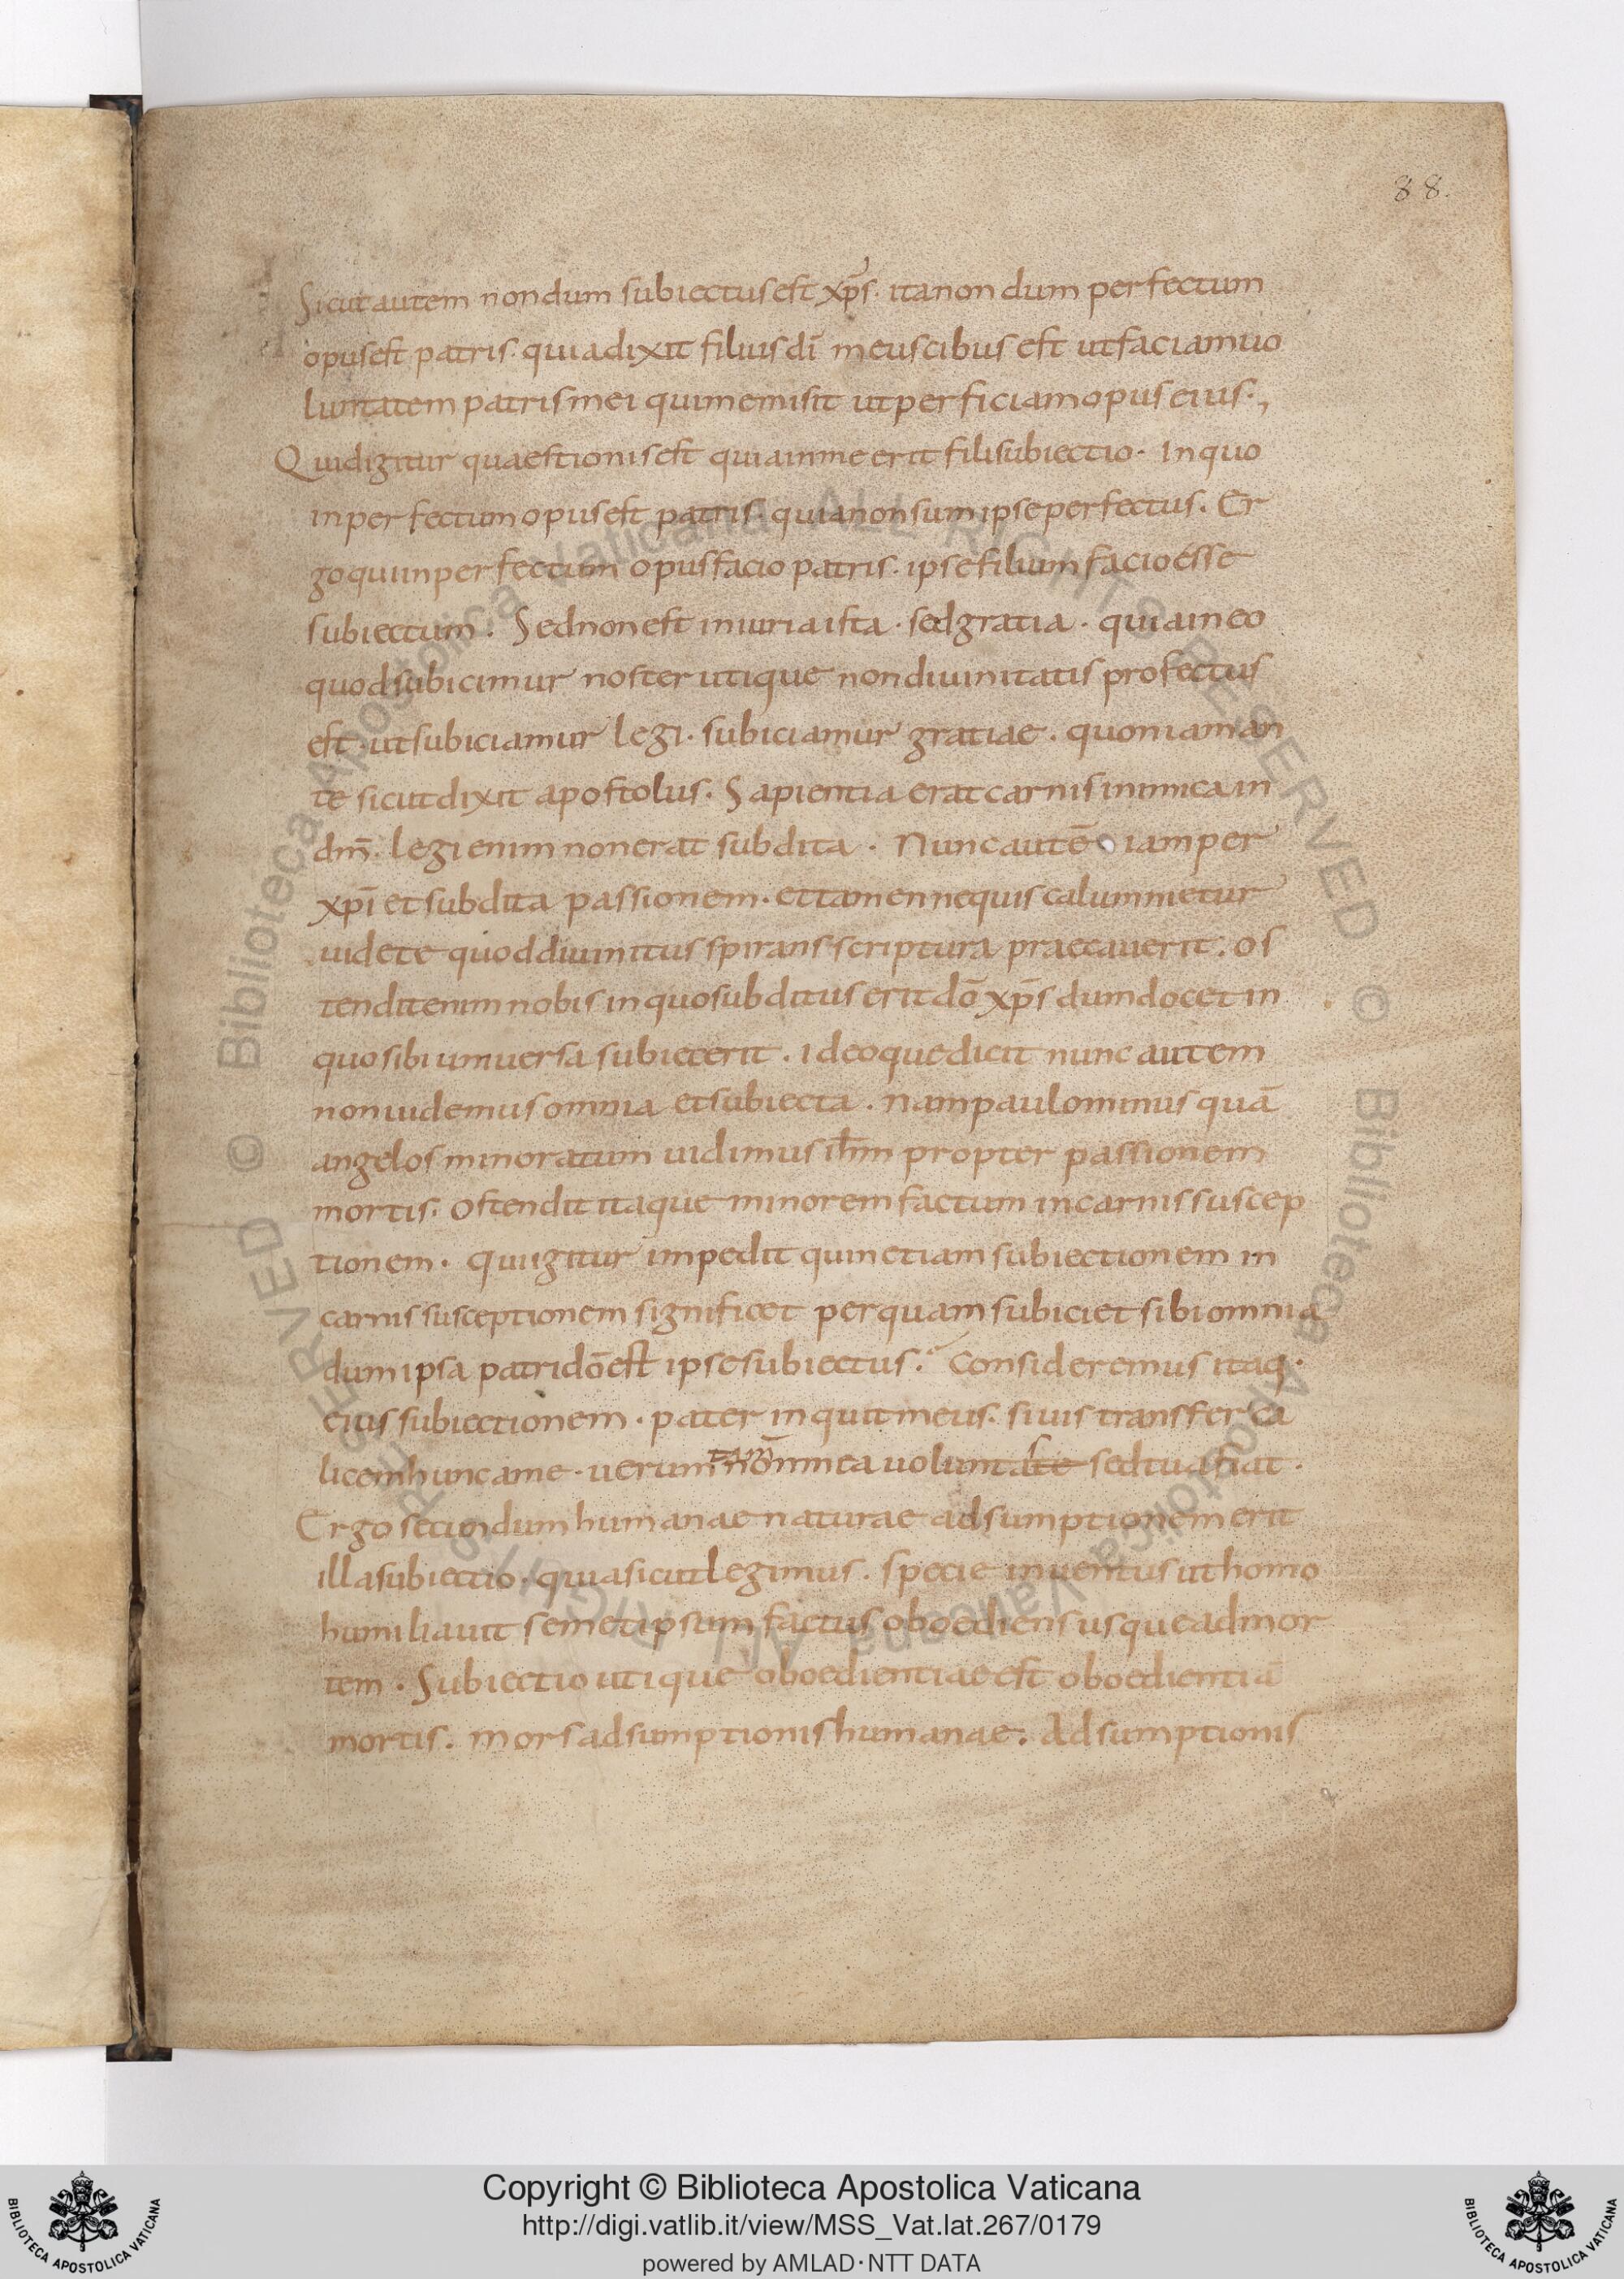 88.
Sicut autem nondum subiectus est xp̄s· ita nondum perfectum
opus est patris· quia dixit filius dī meus cibus est ut faciam uo
luntatem patris mei qui me misit ut perficiam opus eius·,
Quid igitur quaestionis est quia in me erit fili subiectio· In quo
inperfectum opus est patris· quia non sum ipse perfectus. Er
go qui inperfectum opus facio patris· ipse filium facio esse
subiectum. Sed non est iniuria ista· sed gratia· quia in eo
quod subicimur noster utique non diuinitatis profectus
est· ut subiciamur legi· subiciamur gratiae. quoniam an
te sicut dixit apostolus. Sapientia erat carnis inimica in
dm̄. legi enim non erat subdita. Nunc autē iam per
xpī et subdita passionem· et tamen nequis calumnietur
uidete quod diuinitus spirans scriptura praecauerit. Os
tendit enim nobis in quo subditus erit dō xp̄s dum docet in
quo sibi uniuersa subiecerit. ideoque dicit nunc autem
non uidemus omnia et subiecta. nam paulo minus quā
angelos minoratum uidimus ihm̄ propter passionem
mortis. Ostendit itaque minorem factum in carnis suscep
tionem. Qui igitur impedit quin etiam subiectionem in
carnis susceptionem significet per quam subiciet sibi omnia
dum ipsa patri dō est ipse subiectus. Consideremus itaq·
eius subiectionem. pater inquit meus. si uis transfer ca
licem hunc a me· uerum tam̄ non mea uoluntate s sed tua fiat.
Ergo secundum humanae naturae adsumptionem erit
illa subiectio· quia sicut legimus. specie inuentus ut homo
humiliauit semetipsum factus oboediens usque ad mor
tem. Subiectio utique oboedientiae est oboedientiā
mortis. mors adsumptionis humanae. Adsumptionis
© Biblioteca Apostolica Vaticana ALL RIGHTS RESERVED © Biblioteca Apostolica Vaticana ALL RIGHTS RESERVED
Copyright © Biblioteca Apostolica Vaticana
http://digi.vatlib.it/view/MSS_Vat.lat.267/0179
powered by AMLAD·NTT DATA
BIBLIOTECA APOSTOLICA VATICANA
BIBLIOTECA APOSTOLICA VATICANA